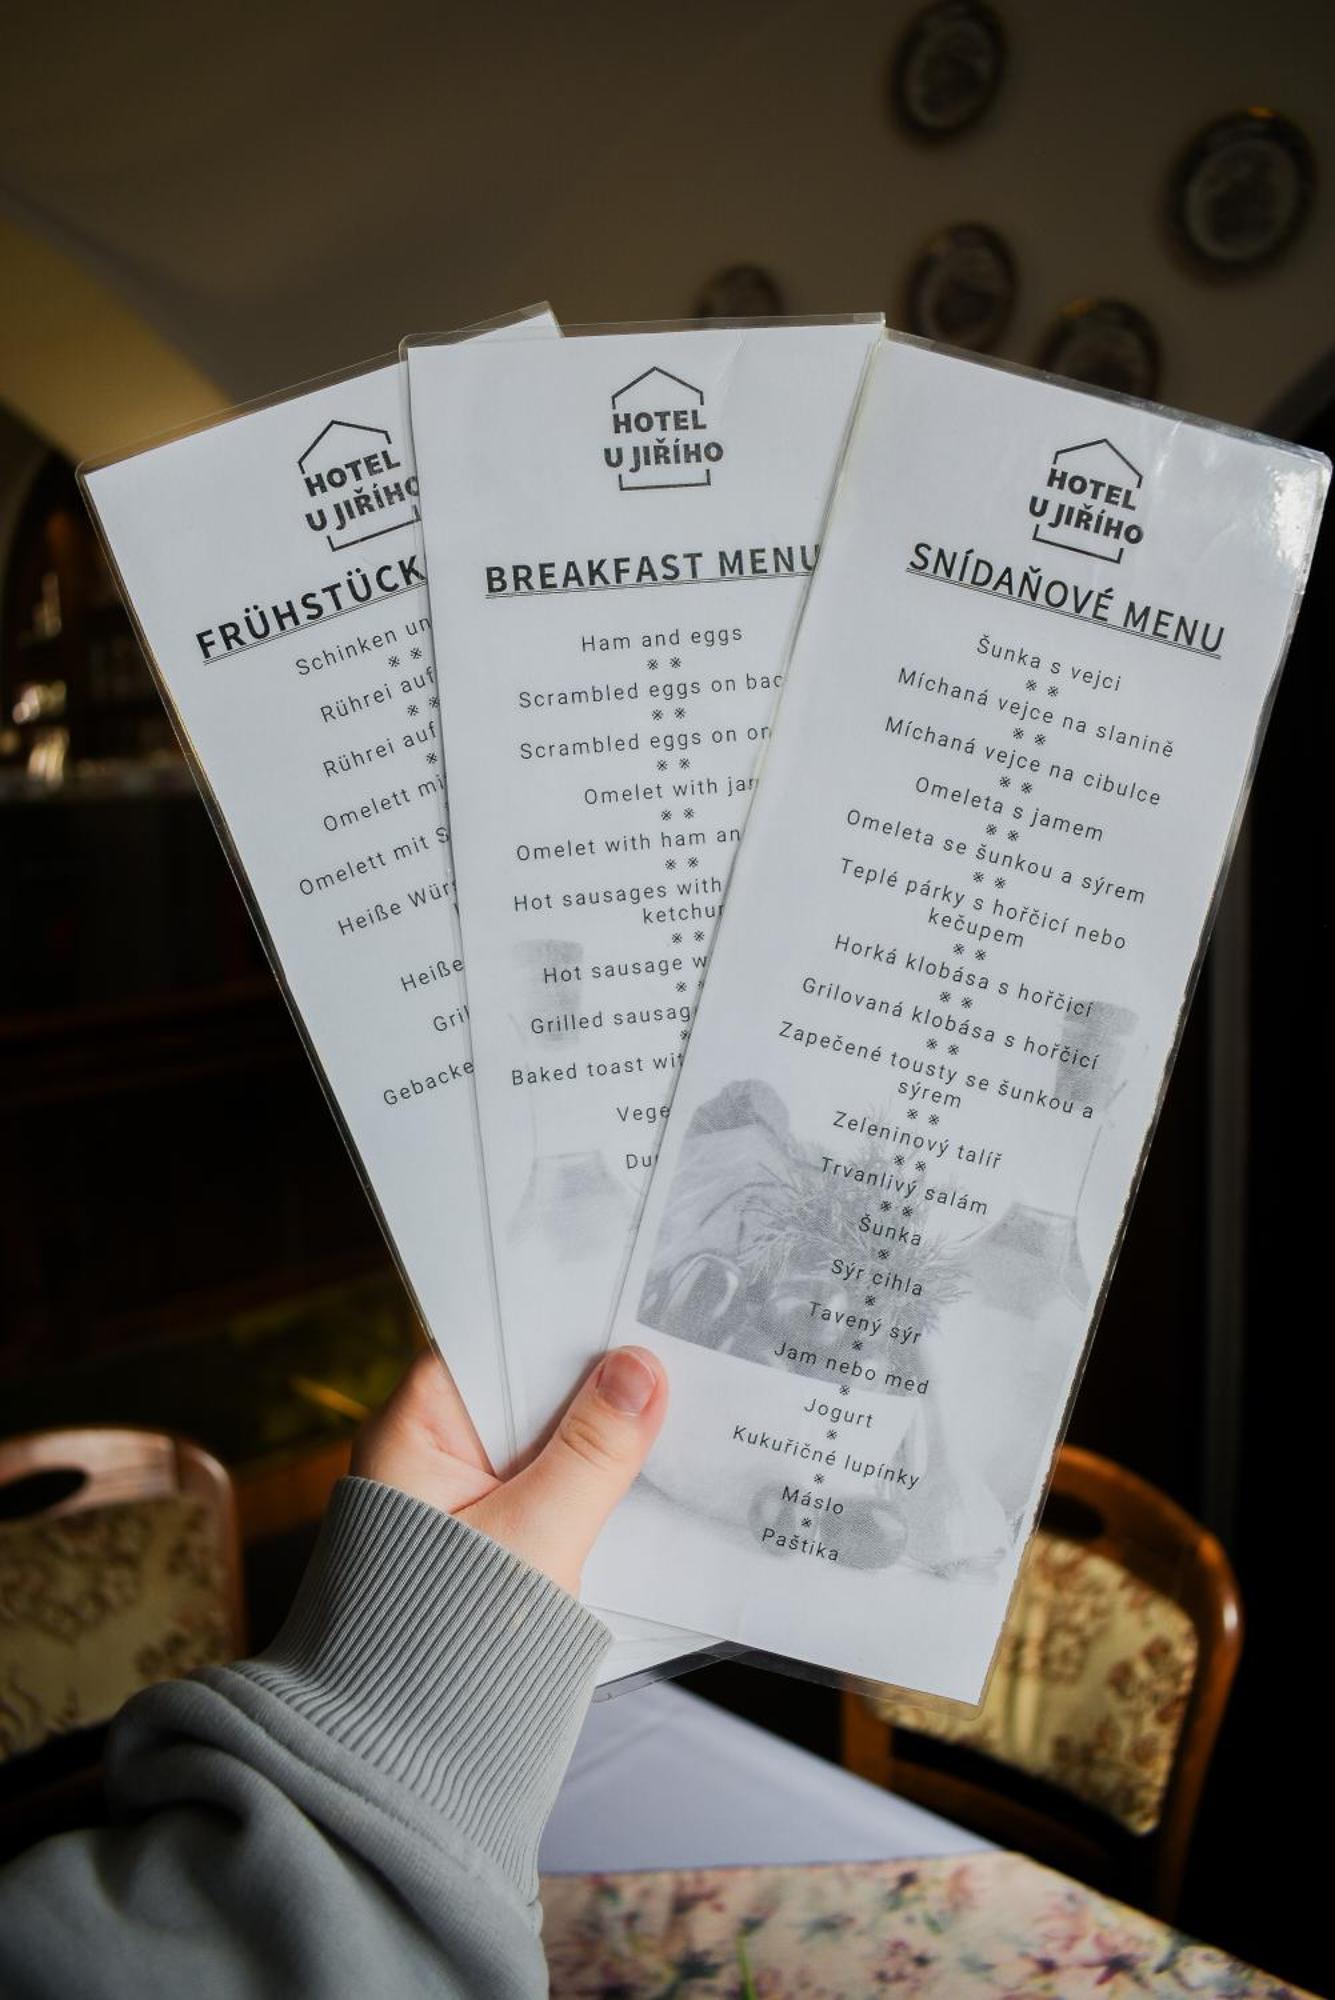 HOTEL
U JIŘÍHO
FRÜHSTÜCK
Schinken
※ ※
Rührei auf
※ ※
Rührei auf
※
Omelett
Omelett mit
Heiße
Heiße
Gebacke
HOTEL
U JIŘÍHO
BREAKFAST MENU
Ham and eggs
※ ※
Scrambled eggs on
※ ※
Scrambled eggs on
※ ※
Omelet with
※ ※
Omelet with ham
※ ※
Hot sausages with
※ ※
Hot sausage
※
Grilled
※
Baked toast
HOTEL
U JIŘÍHO
SNÍDAŇOVÉ MENU
Šunka s vejci
※ ※
Míchaná vejce na slanině
※ ※
Míchaná vejce na cibulce
※ ※
Omeleta s jamem
※ ※
Omeleta se šunkou a sýrem
※ ※
Teplé párky s hořčicí nebo
kečupem
※ ※
Horká klobása s hořčicí
※ ※
Grilovaná klobása s hořčicí
※ ※
Zapečené tousty se šunkou a
sýrem
※ ※
Zeleninový talíř
※ ※
Trvanlivý salám
※ ※
Šunka
※
Sýr cihla
※
Tavený sýr
※
Jam nebo med
※
Jogurt
※
Kukuřičné lupínky
※
Máslo
※
Paštika